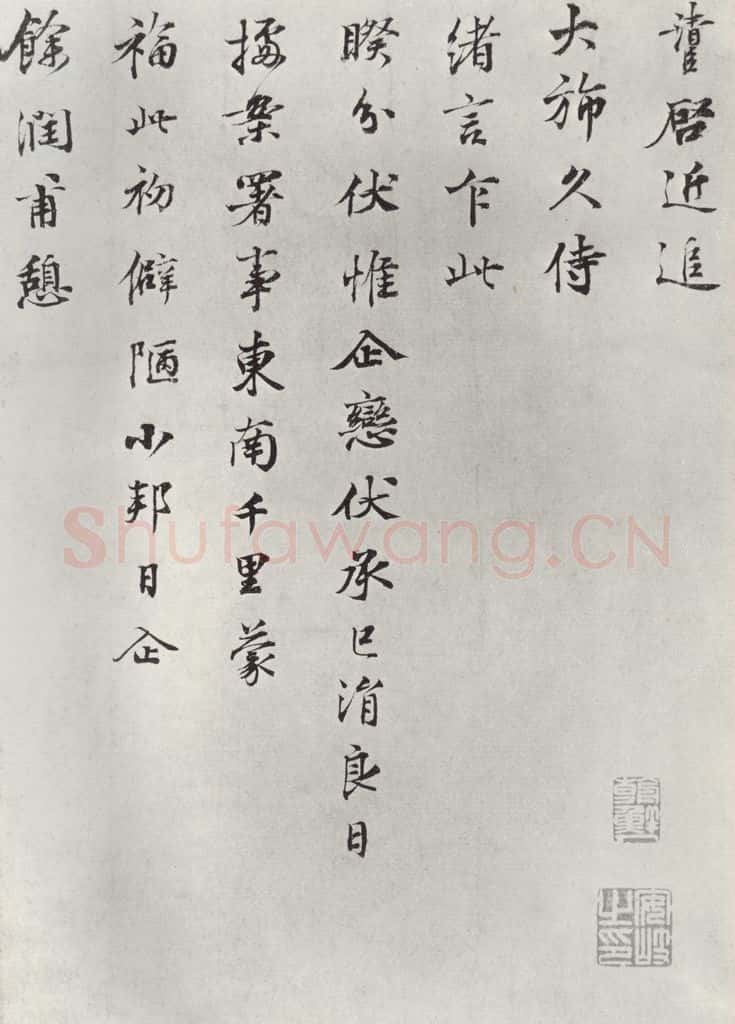 啓近追
大斾久侍
緒言乍此
睽分伏惟企戀伏承已涓良日
據案署事東南千里蒙
福此初僻陋小邦日企
餘潤甫憩
Shufawang.CN
安岐之印